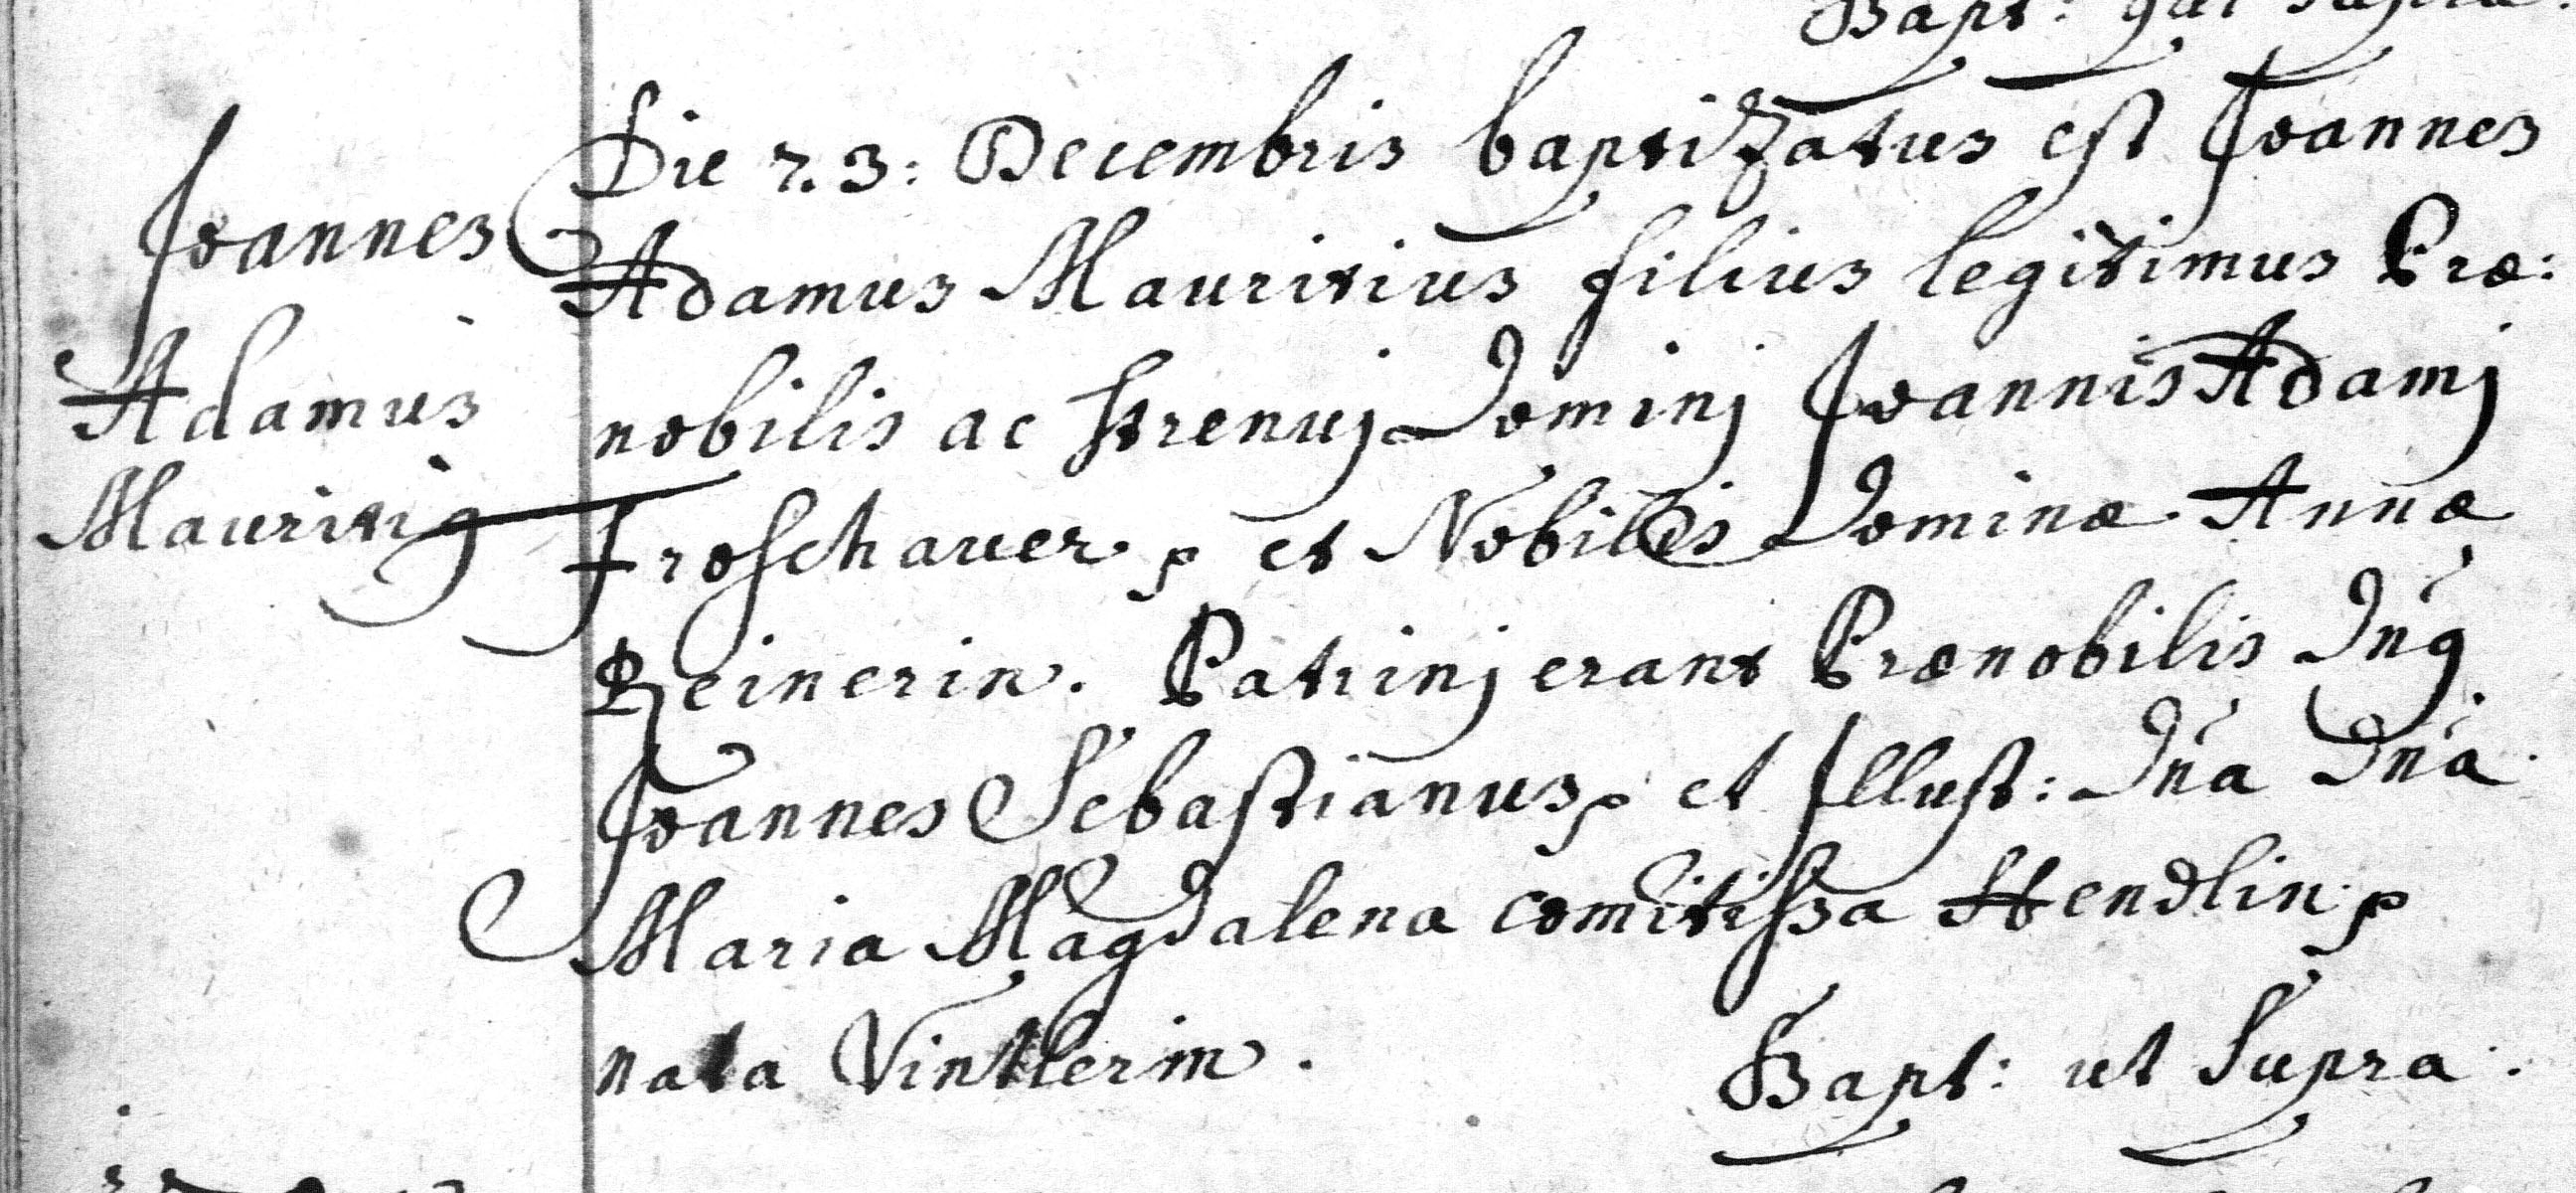 Bapt: qui supra.
Die 23: Decembris baptizatus est Joannes
Joannes
Adamus Mauritius filius legitimus Præ:
Adamus
nobilis ac strenuj Dominj Joannis Adamj
Mauritiꝯ
Froschauer ꝑ et Nobilis Dominæ Annæ
Reinerin. Patrinj erant Prænobilis Dnꝯ
Joannes Sebastianus ꝑ et Illust: Dna Dna
Maria Magdalena comitissa Hendlin ꝑ
nata Vintlerin.
Bapt: ut Supra.